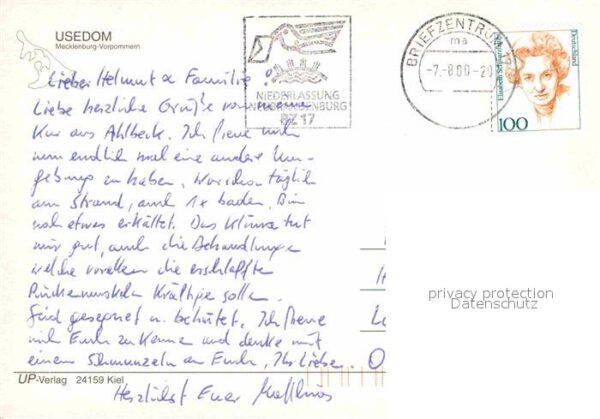 USEDOM
Mecklenburg-Vorpommern
Lieber Helmut & Familie
Liebe herzliche Grüße von meiner
Kur aus Ahlbeck. Ich freue mich
nun endlich mal eine andere Um-
gebung zu haben. War schon täglich
am Strand, auch 1x baden. Bin
noch etwas erkältet. Das Klima tut
mir gut, auch die Behandlungen
welche vor allem die erschlaffte
Rückenmuskeln kräftigen sollen.
Seid gesegnet u. behütet. Ich freue
mich Euch zu kennen und denke mit
einem Schmunzeln an Euch, Ihr Lieben.
Herzlichst Euer Matthias
UP-Verlag 24159 Kiel
NIEDERLASSUNG
NEUBRANDENBURG
BZ 17
BRIEFZENTRUM 17
ma
-7.-8.00-20
Deutschland
100
privacy protection
Datenschutz